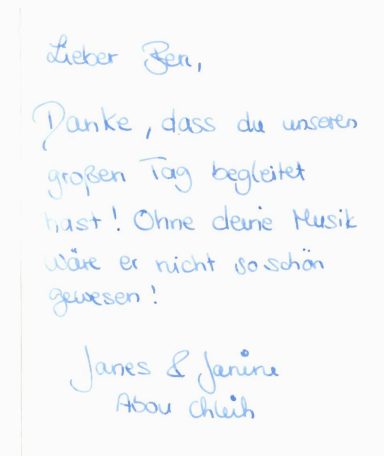 Lieber Ben,
Danke, dass du unseren
großen Tag begleitet
hast! Ohne deine Musik
wäre er nicht so schön
gewesen!
Janes & Janine
Abou Chleih